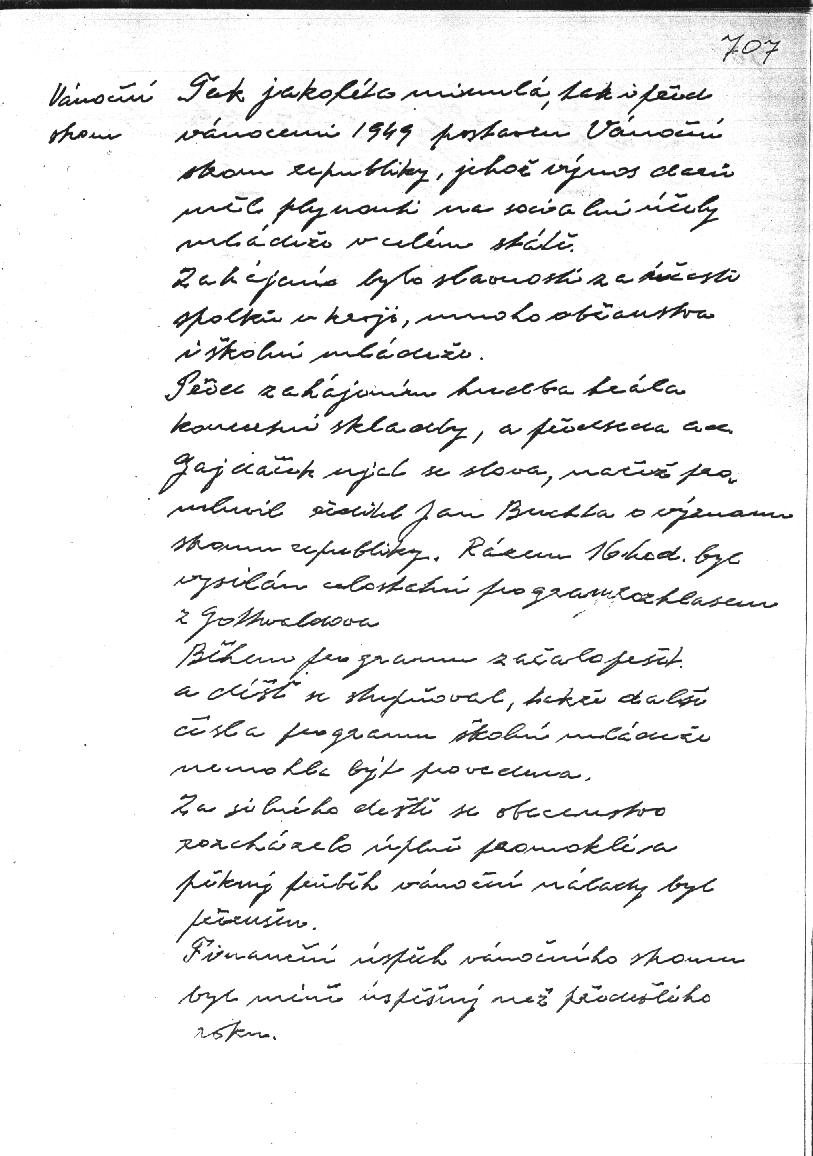 707
Vánoční
strom
Tak jako léta minulá, tak i před
vánocemi 1949 postaven Vánoční
strom republiky, jehož výnos darů
měl plynouti na sociální účely
mládeže v celém státě.
Zahájeno bylo slavnosti za účasti
spolků v kroji, mnoho občanstva
i školní mládeže.
Před zahájením hudba hrála
koncertní skladby, a předseda
Gajdáček ujal se slova, načež pro
mluvil ředitel Jan Buchta o významu
stromu republiky. Rázem 16 hod. byl
vysílán celostátní program rozhlasem
z Gottwaldova
Během programu začalo pršet
a déšť se stupňoval, takže další
čísla programu školní mládeže
nemohla být provedena.
Za silného deště se obecenstvo
rozcházelo úplně promoklé a
pěkný průběh vánoční nálady byl
přerušen.
Finanční úspěch vánočního stromu
byl méně úspěšný než předešlého
roku.